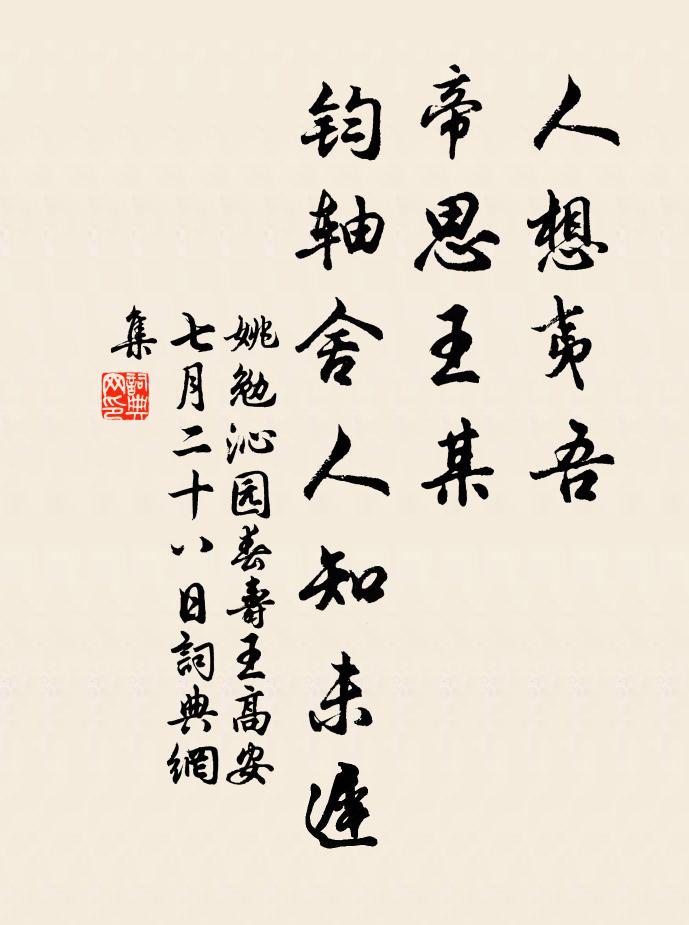 人想夷吾
帝思王某
钧轴舍人知未遲
姚勉沁园春壽王高安
七月二十八日詞典網
集
詞典
网印